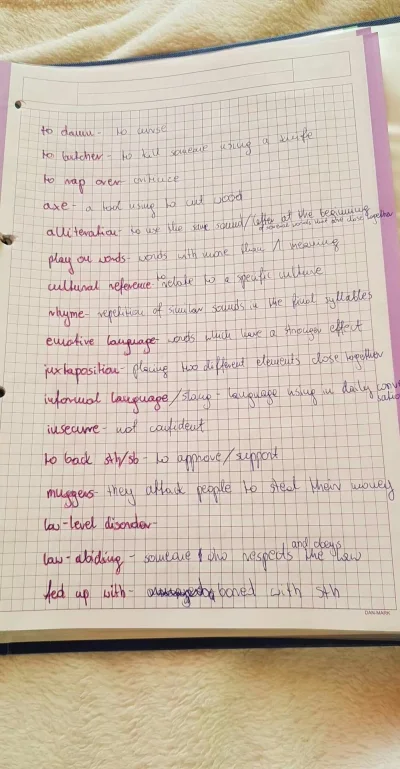 to damn - to curse
to butcher - to kill someone using a knife
to rap over - criticize
axe - a tool using to cut wood
alliteration - to use the same sound/letter at the beginning
of several words that are close together
play on words - words with more than 1 meaning
cultural reference - to relate to a specific culture
rhyme - repetition of similar sounds in the final syllables
emotive language - words which have a stronger effect
juxtaposition - placing two different elements close together
informal language/slang - language using in daily conver
sation
insecure - not confident
to back sth/sb - to approve/support
muggers - they attack people to steal their money
low-level disorder -
law-abiding - someone who respects and obeys the law
fed up with - bored with sth
DAN-MARK